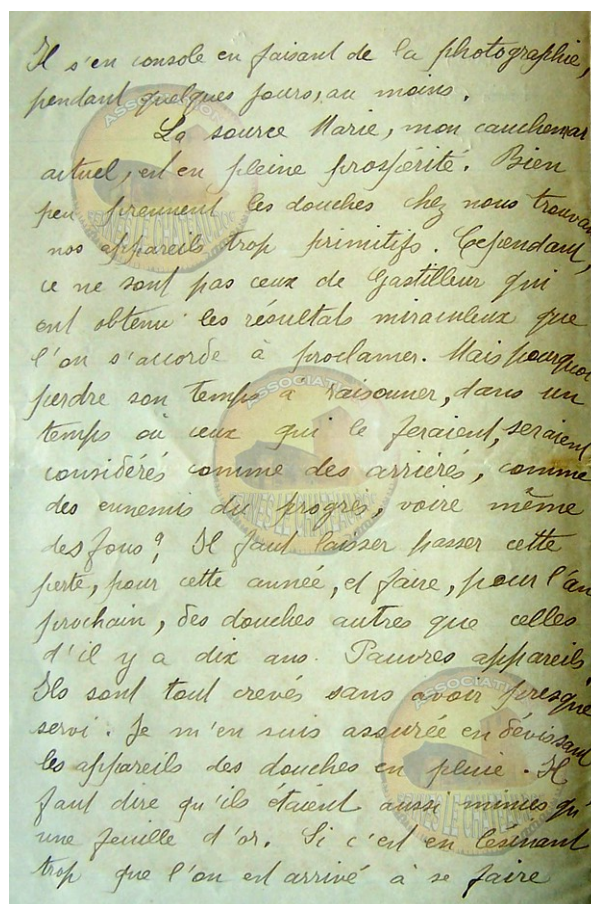 Il s'en console en faisant de la photographie,
pendant quelques jours, au moins.
La source Marie, mon cauchemar
actuel, est en pleine prospérité. Bien
peu prennent les douches chez nous trouvant
nos appareils trop primitifs. Cependant,
ce ne sont pas ceux de Gastilleur qui
ont obtenu les résultats miraculeux que
l'on s'accorde à proclamer. Mais pourquoi
perdre son temps à raisonner, dans un
temps où ceux qui le feraient, seraient
considérés comme des arriérés, comme
des ennemis du progrès, voire même
des fous? Il faut laisser passer cette
perte, pour cette année, et faire, pour l'an
prochain, des douches autres que celles
d'il y a dix ans. Pauvres appareils
Ils sont tout crevés sans avoir presque
servi. Je m'en suis assurée en dévissant
les appareils des douches en pluie. Il
faut dire qu'ils étaient aussi minces qu'
une feuille d'or. Si c'est en lésinant
trop que l'on est arrivé à se faire
ASSOCIATION
ASSOCIATION
RENNES LE CHATEAU.DOC
ASSOCIATION